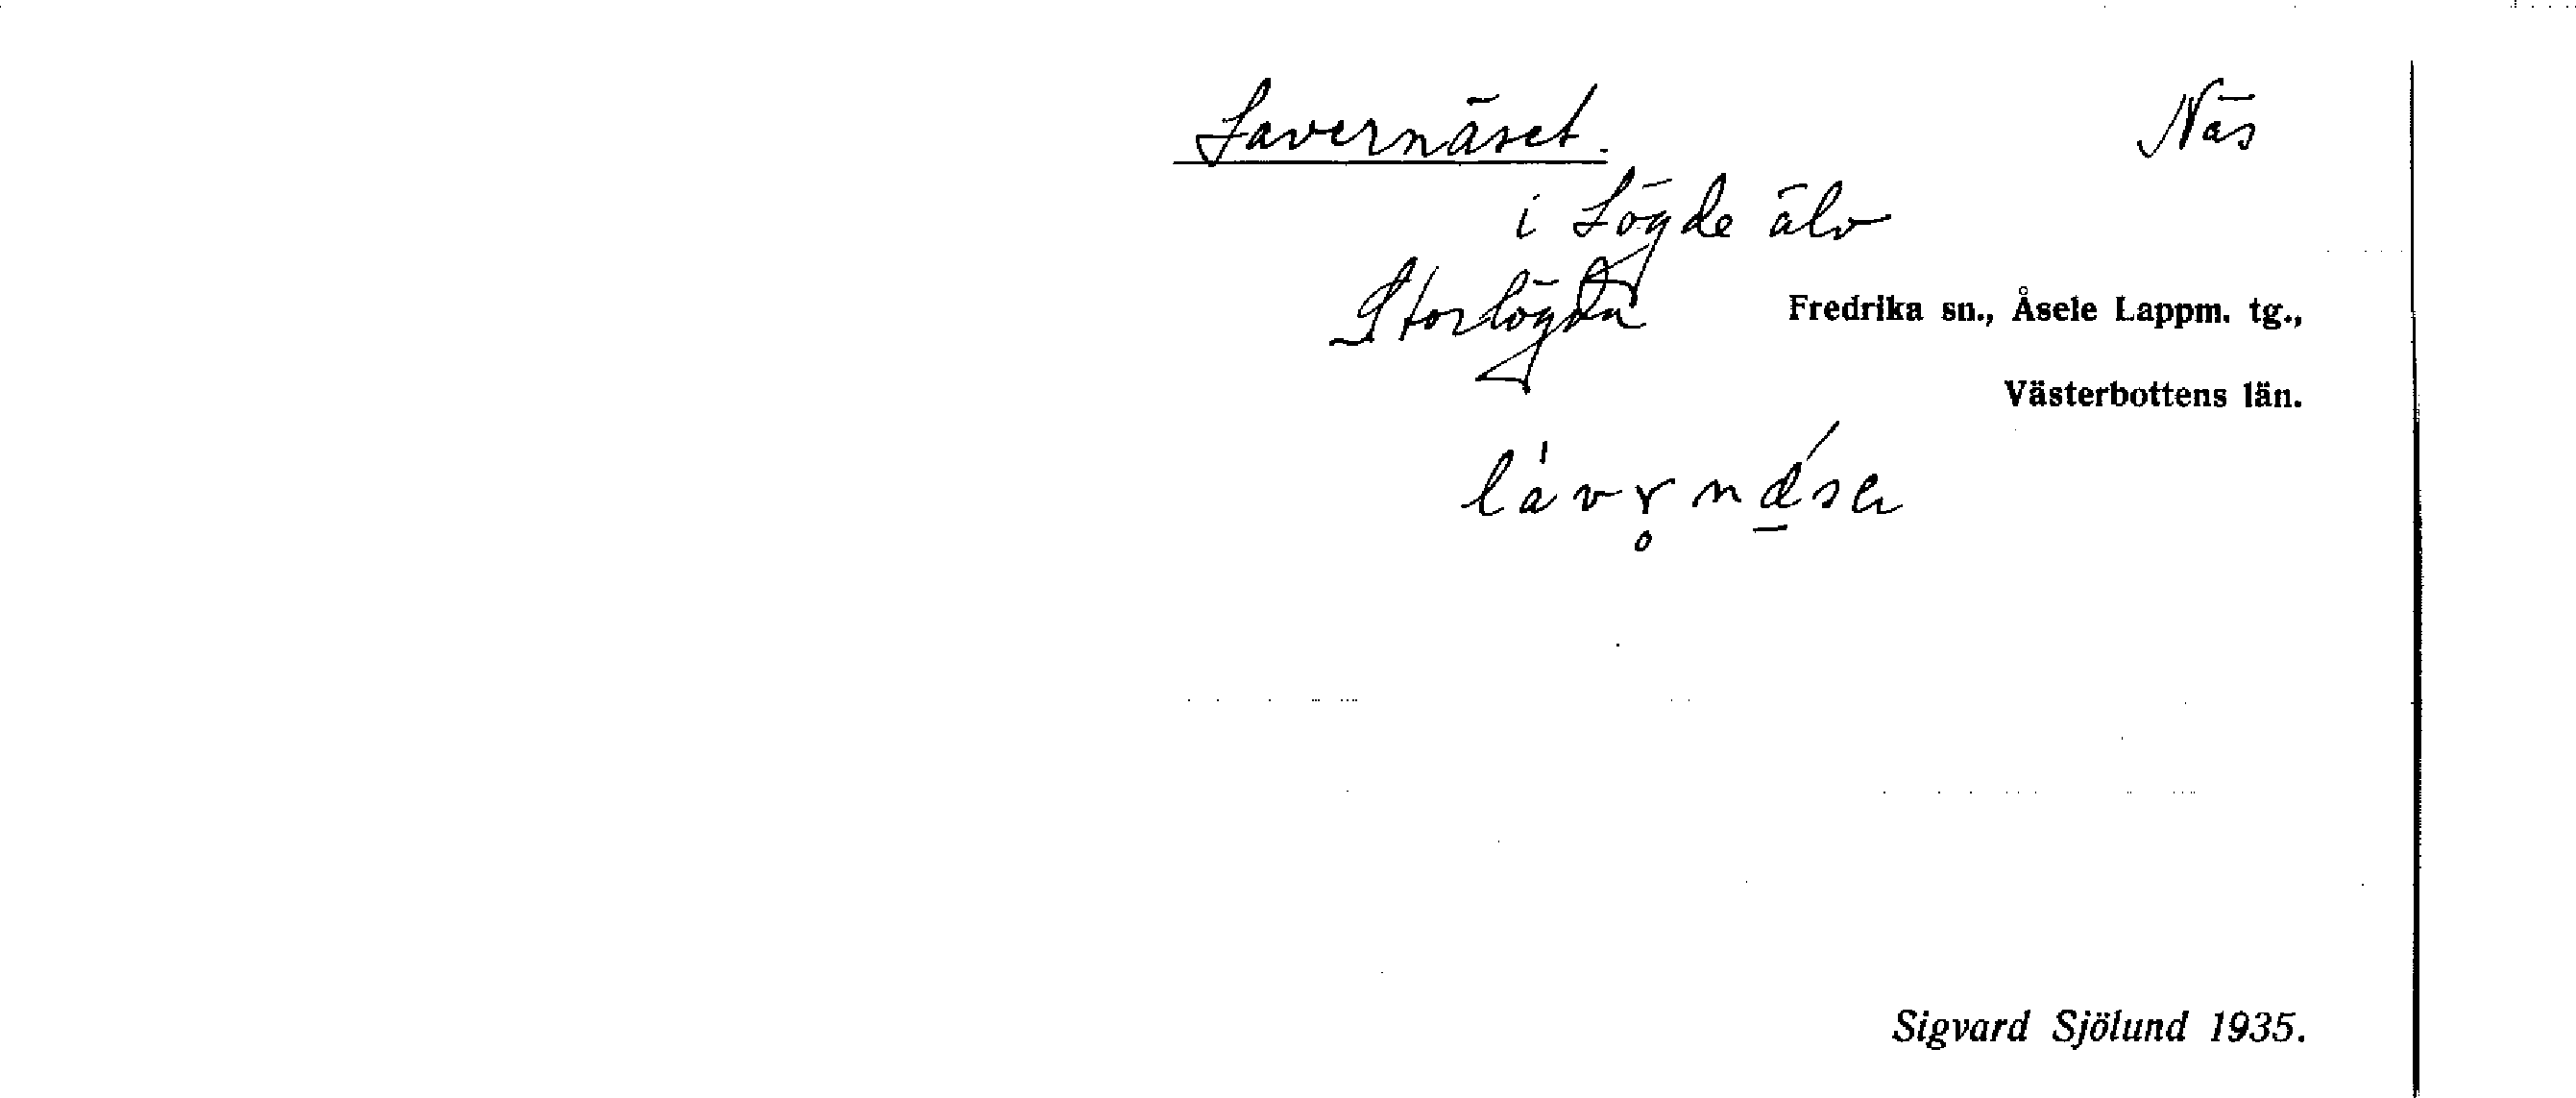 Lavernäset. Näs
i Lögde älv
Storlögda Fredrika sn., Åsele Lappm. tg.,
Västerbottens län.
Sigvard Sjölund 1935.